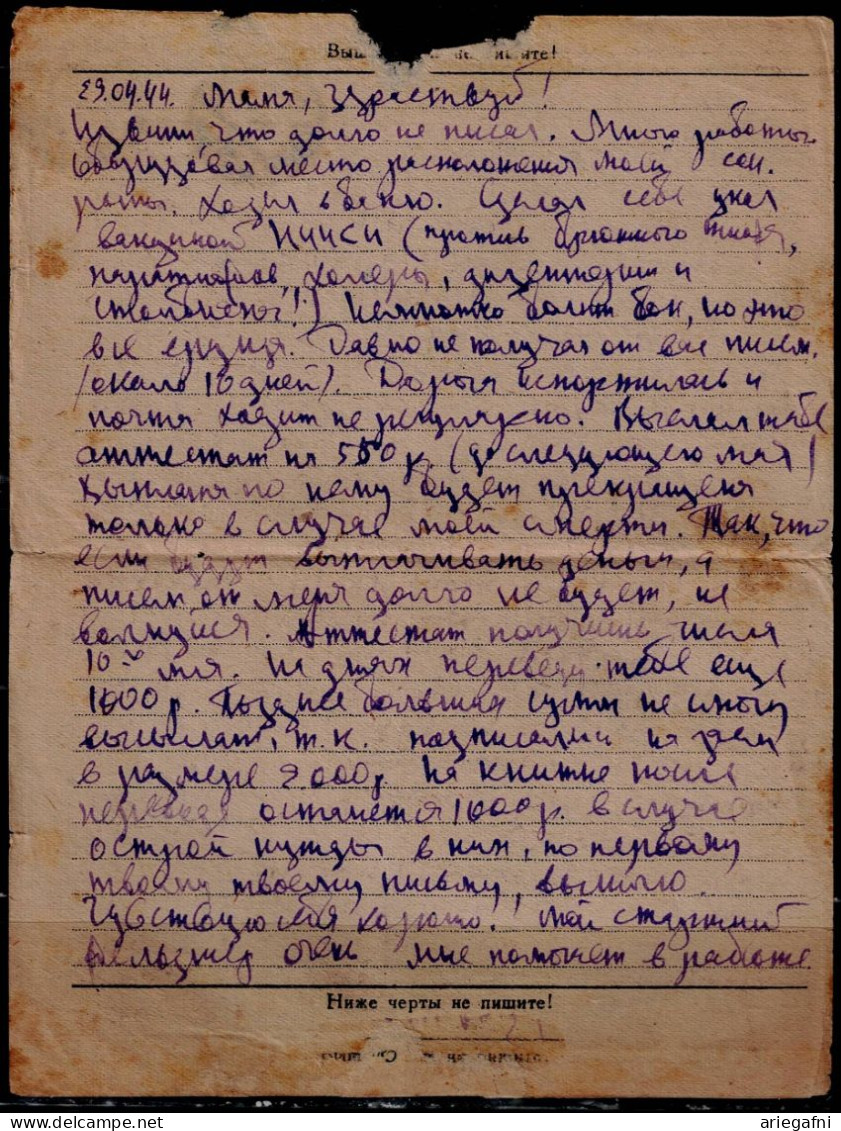 29.04.44. Мама, здравствуй!
Извини, что долго не писал. Много работы.
Оборудовал место расположения моей сан.
роты. Ходил в баню. Сделал себе укол
вакциной НИИСИ (против брюшного тифа,
паратифов, холеры, дизентерии и
столбняка!) Немножко болит бок, но это
всё ерунда. Давно не получал от вас писем.
(около 10 дней). Дорога испортилась и
почта ходит не регулярно. Выслал тебе
аттестат на 550 р. (до следующего мая)
Выплата по нему будет прекращена
только в случае моей смерти. Так, что
если будут выплачивать деньги, а
писем от меня долго не будет, не
волнуйся. Аттестат получишь числа
10-го мая. На днях переведу тебе ещё
1000 р. Позднее большая сумм не смогу
высылать, т.к. подписался на заём
в размере 2.000 р. На книжке после
перевода останется 1000 р. в случае
острой нужды в них, по первому
твоему твоему письму, вышлю.
Чувствую себя хорошо. Мой старший
фельдшер очень мне помогает в работе.
Ниже черты не пишите!